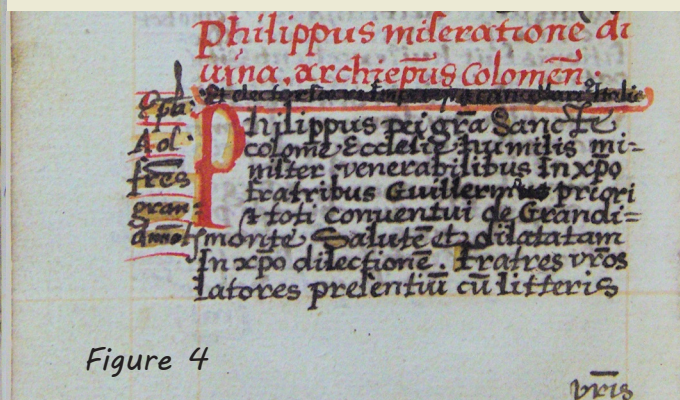 Philippus miseratione di
uina, archiep̄us Colomēn.
Ep̄la
Ad
fr̄es
gran
dmōt
Philippus dei gr̄a Sancte
colomē Ecclesie humilis mi=
nister venerabilibus In xp̄o
fratribus Guillermo priori
& toti conventui de Grandi=
monte Salutē et dilatatam
In xp̄o dilectionē. Fratres vr̄os
latores presentiū cū litteris
vr̄is
Figure 4